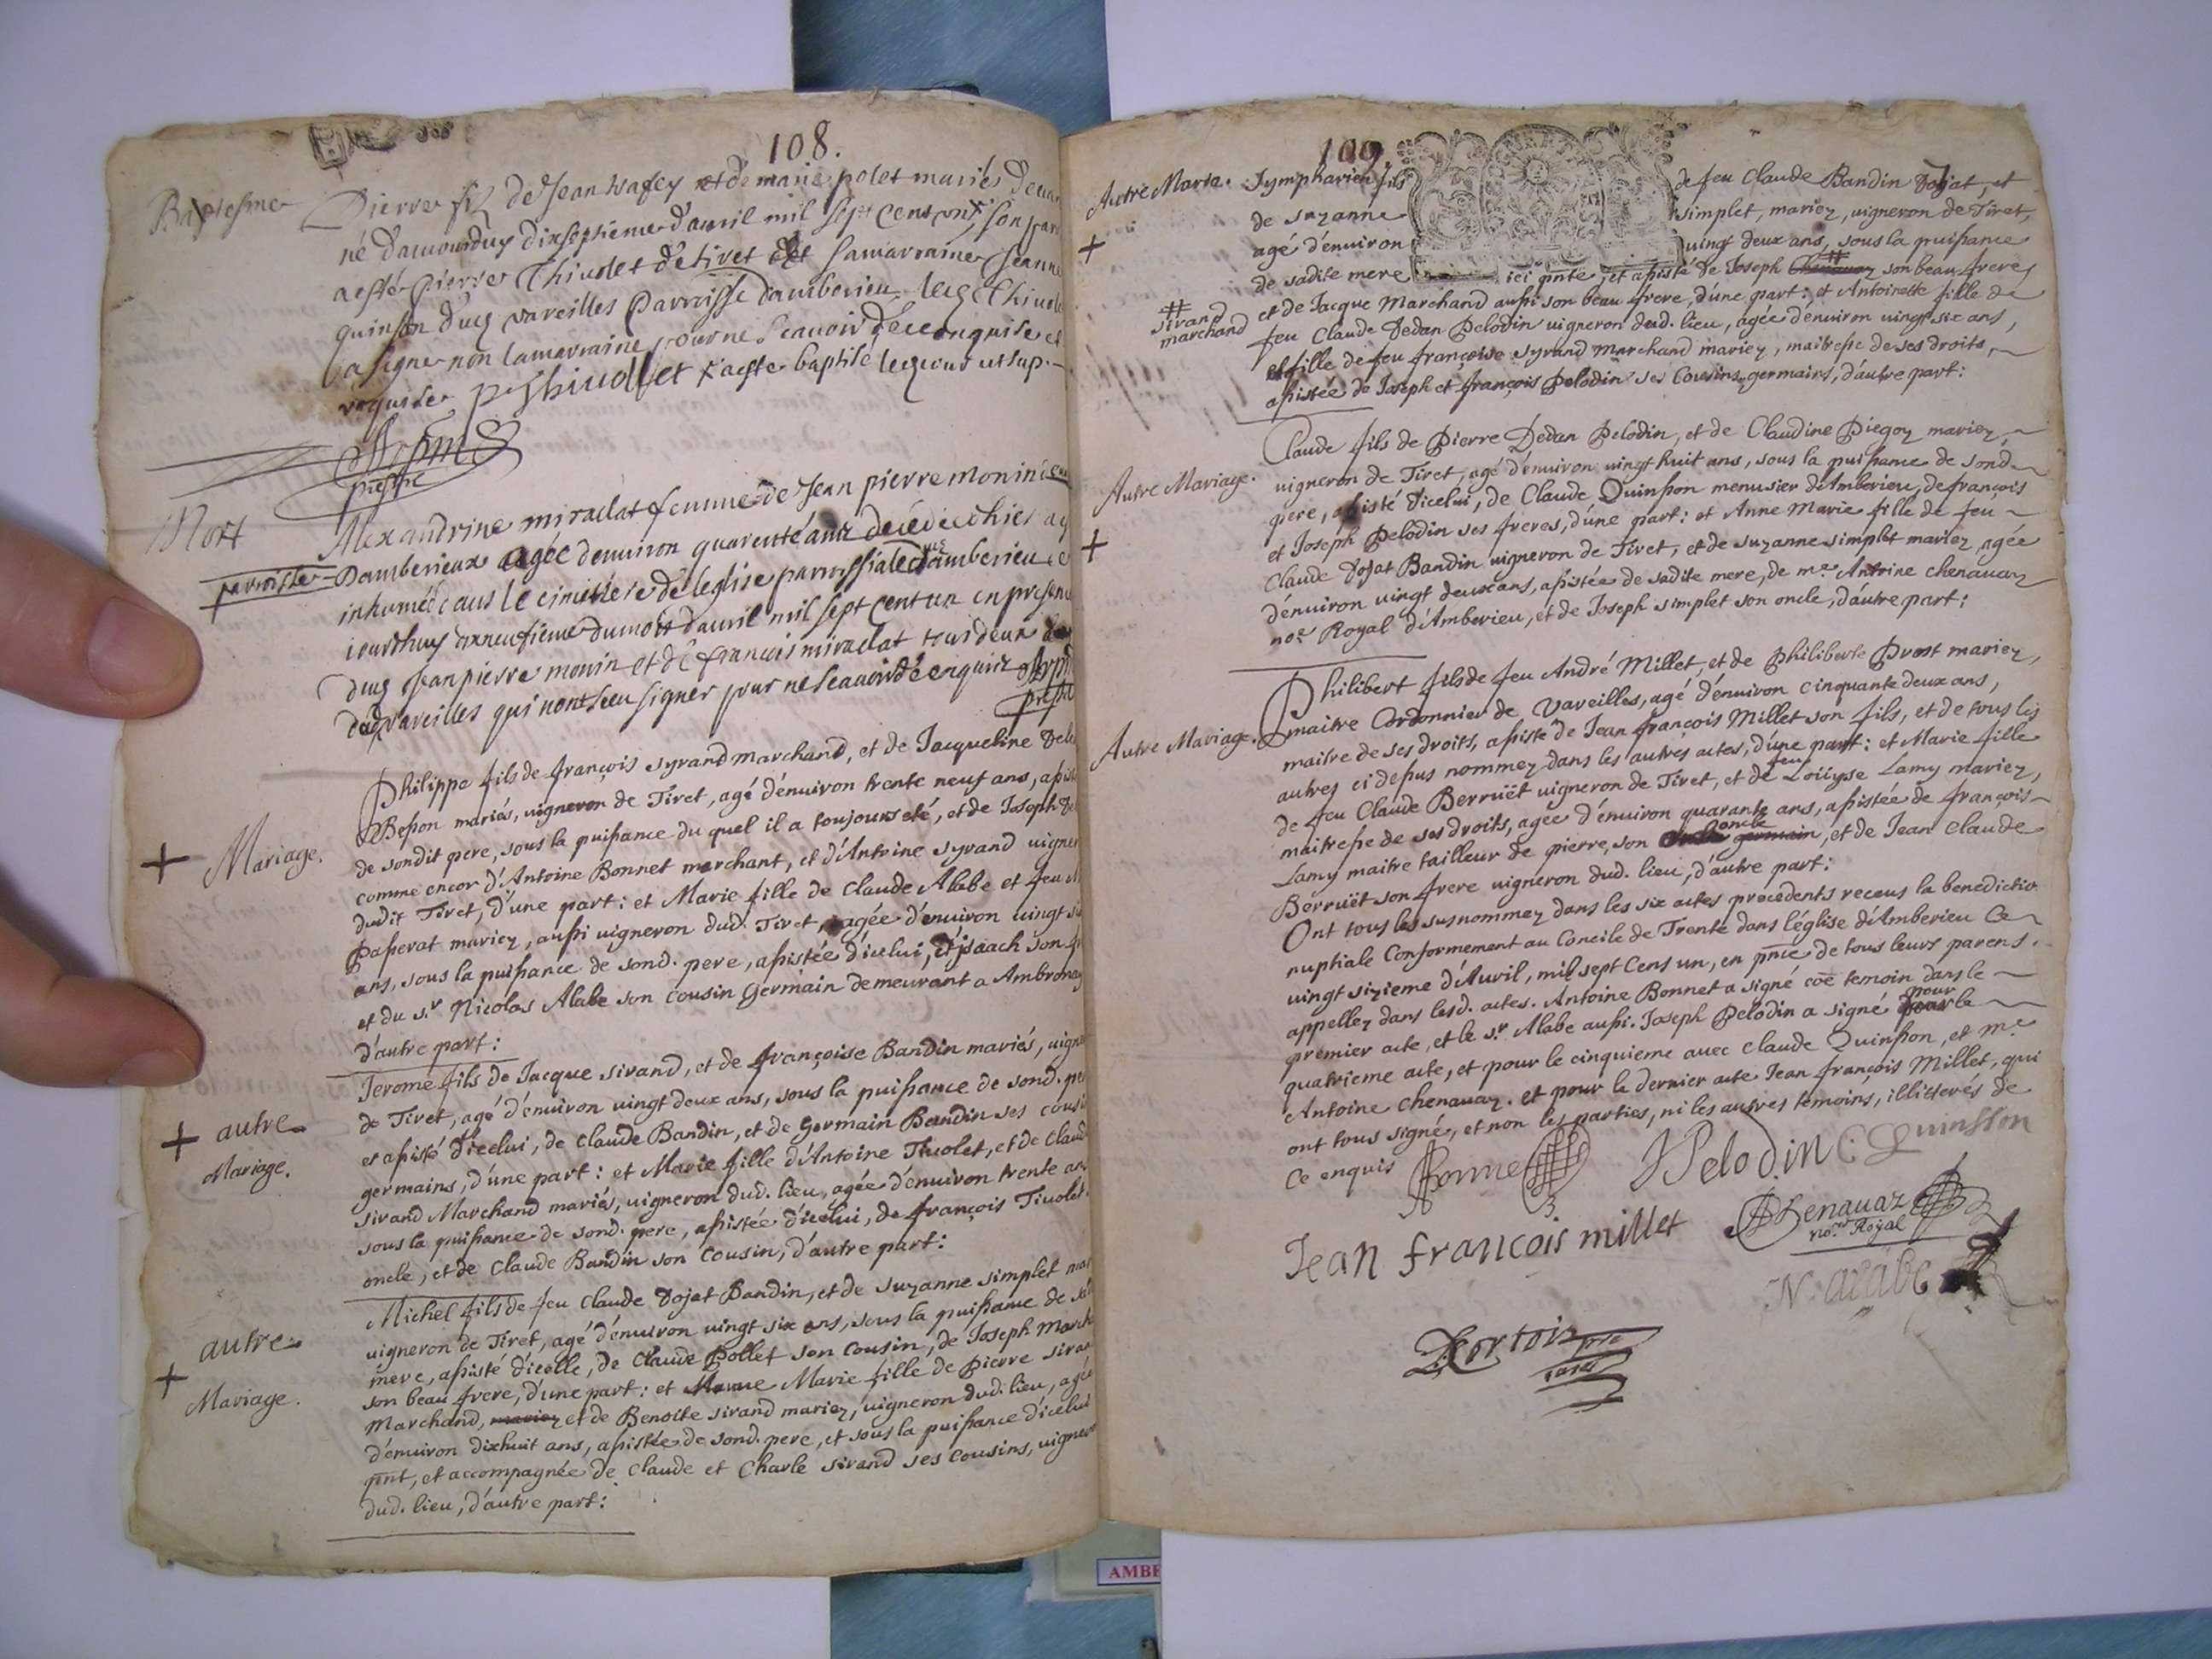 108.
Baptesme
Pierre filz de Jean et de marie polet mariés
né dixseptieme d'avril mil sept cens son
a esté pierre Thivolet de tiret et sa marraine Jeanne
quinson dud vareilles parroisse d'amberieu
a signe non la marraine pour ne scavoir de ce enquise et
requise p Thivollet baptisé
prestre
Mort
Alexandrine miraclat femme de Jean pierre monin
parroisse
d'amberieux agée denviron quarente ans decedée hier
inhumée dans le cimetiere de leglise parroissiale d'amberieu ce
iourdhuy dixneufieme du mois d'avril mil sept cent un en presence
dud Jean pierre monin et de francois miraclat tous deux
dud vareilles qui nont sceu signer pour ne scavoir de ce enquiz
prestre
+ Mariage.
Philippe fils de françois syrand marchand, et de Jacqueline
Besson mariés, vigneron de Tiret, agé d'environ trente neuf ans,
de sondit pere, sous la puissance du quel il a toujours eté, et de Joseph
comme encor d'Antoine Bonnet marchant, et d'Antoine syrand
dudit Tiret, d'une part: et Marie fille de Claude Alabe et feu
Passerat mariez, aussi vigneron dud. Tiret, agée d'environ vingt
ans, sous la puissance de sond. pere, assistée d'icelui, d'isaach son
et du s.r Nicolas Alabe son cousin Germain demeurant a Ambronay
d'autre part:
+ autre
Mariage.
Jerome fils de Jacque sirand, et de françoise Bandin mariés,
de Tiret, agé d'environ vingt deux ans, sous la puissance de sond.
et assisté d'icelui, de Claude Bandin, et de Germain Bandin ses
germains, d'une part: et Marie fille d'Antoine Tivolet, et de
sirand Marchand mariés, vigneron dud. lieu, agée d'environ trente
sous la puissance de sond. pere, assistée d'icelui, de françois Tivolet
oncle, et de Claude Bandin son Cousin, d'autre part:
autre
+ Mariage.
Michel fils de feu Claude Dojat Bandin, et de suzanne simplet
vigneron de Tiret, agé d'environ vingt six ans, sous la puissance de
mere, assisté d'icelle, de Claude Pollet son Cousin, de Joseph
son beau frere, d'une part: et Marie fille de Pierre
Marchand, mariez et de Benoite sirand mariez, vigneron dud. lieu,
d'environ dixhuit ans, assistée de sond. pere, et sous la puissance d'icelui
pnt, et accompagnée de Claude et Charle sirand ses Cousins,
dud. lieu, d'autre part:
109.
Autre Maria.
+
Sympharien fils de feu Claude Bandin Dojat, et
de suzanne simplet, mariez, vigneron de Tiret,
agé d'environ vingt deux ans, sous la puissance
de sadite mere ici pnte, et assisté de Joseph # son beau frere,
# sirand marchand
et de Jacque Marchand aussi son beau frere, d'une part: et Antoinette fille de
feu Claude Dedan Pelodin vigneron dud. lieu, agée d'environ vingt six ans,
fille de feu françoise syrand Marchand mariez, maitresse de ses droits,
assistée de Joseph et françois Pelodin ses Cousins germains, d'autre part:
Autre Mariage.
+
Claude fils de Pierre Dedan Pelodin, et de Claudine Piegoz mariez,
vigneron de Tiret, agé d'environ vingt huit ans, sous la puissance de sond.
pere, assisté d'icelui, de Claude Quinsson menusier d'Amberieu, de françois
et Joseph Pelodin ses freres, d'une part: et Anne Marie fille de feu
Claude Dojat Bandin vigneron de Tiret, et de suzanne simplet mariez, agée
d'environ vingt deux ans, assistée de sadite mere, de m.e Antoine Chenavaz
no.e Royal d'Amberieu, et de Joseph simplet son oncle, d'autre part:
Autre Mariage.
Philibert fils de feu André Millet, et de Philiberte Prost mariez,
maitre Cordonnier de Vareilles, agé d'environ cinquante deux ans,
maitre de ses droits, assisté de Jean françois Millet son fils, et de tous les
autres ci dessus nommez dans les autres actes, d'une part: et Marie fille
de feu Claude Berruët vigneron de Tiret, et de feu Loüyse Lamy mariez,
maitresse de ses droits, agée d'environ quarante ans, assistée de françois
Lamy maitre tailleur de pierre, son oncle germain, et de Jean Claude
Berruët son frere vigneron dud. lieu, d'autre part:
Ont tous les susnommez dans les six actes precedents receus la benedictio
nuptiale Conformement au Concile de Trente dans l'église d'Amberieu Ce
vingt sizieme d'Avril, mil sept Cens un, en pnce de tous leurs parens
appellez dans lesd. actes. Antoine Bonnet a signé coe temoin dans le
premier acte, et le s.r Alabe aussi. Joseph Pelodin a signé pour le
quatrieme acte, et pour le cinquieme avec Claude Quinsson, et m.e
Antoine Chenavaz. et pour le dernier acte Jean françois Millet, qui
ont tous signé, et non les parties, ni les autres temoins, illiterés de
Ce enquis
Bonnet
J Pelodin
C Quinsson
Jean françois millet
A Chenavaz
no.re Royal
N. alabe
AMBE